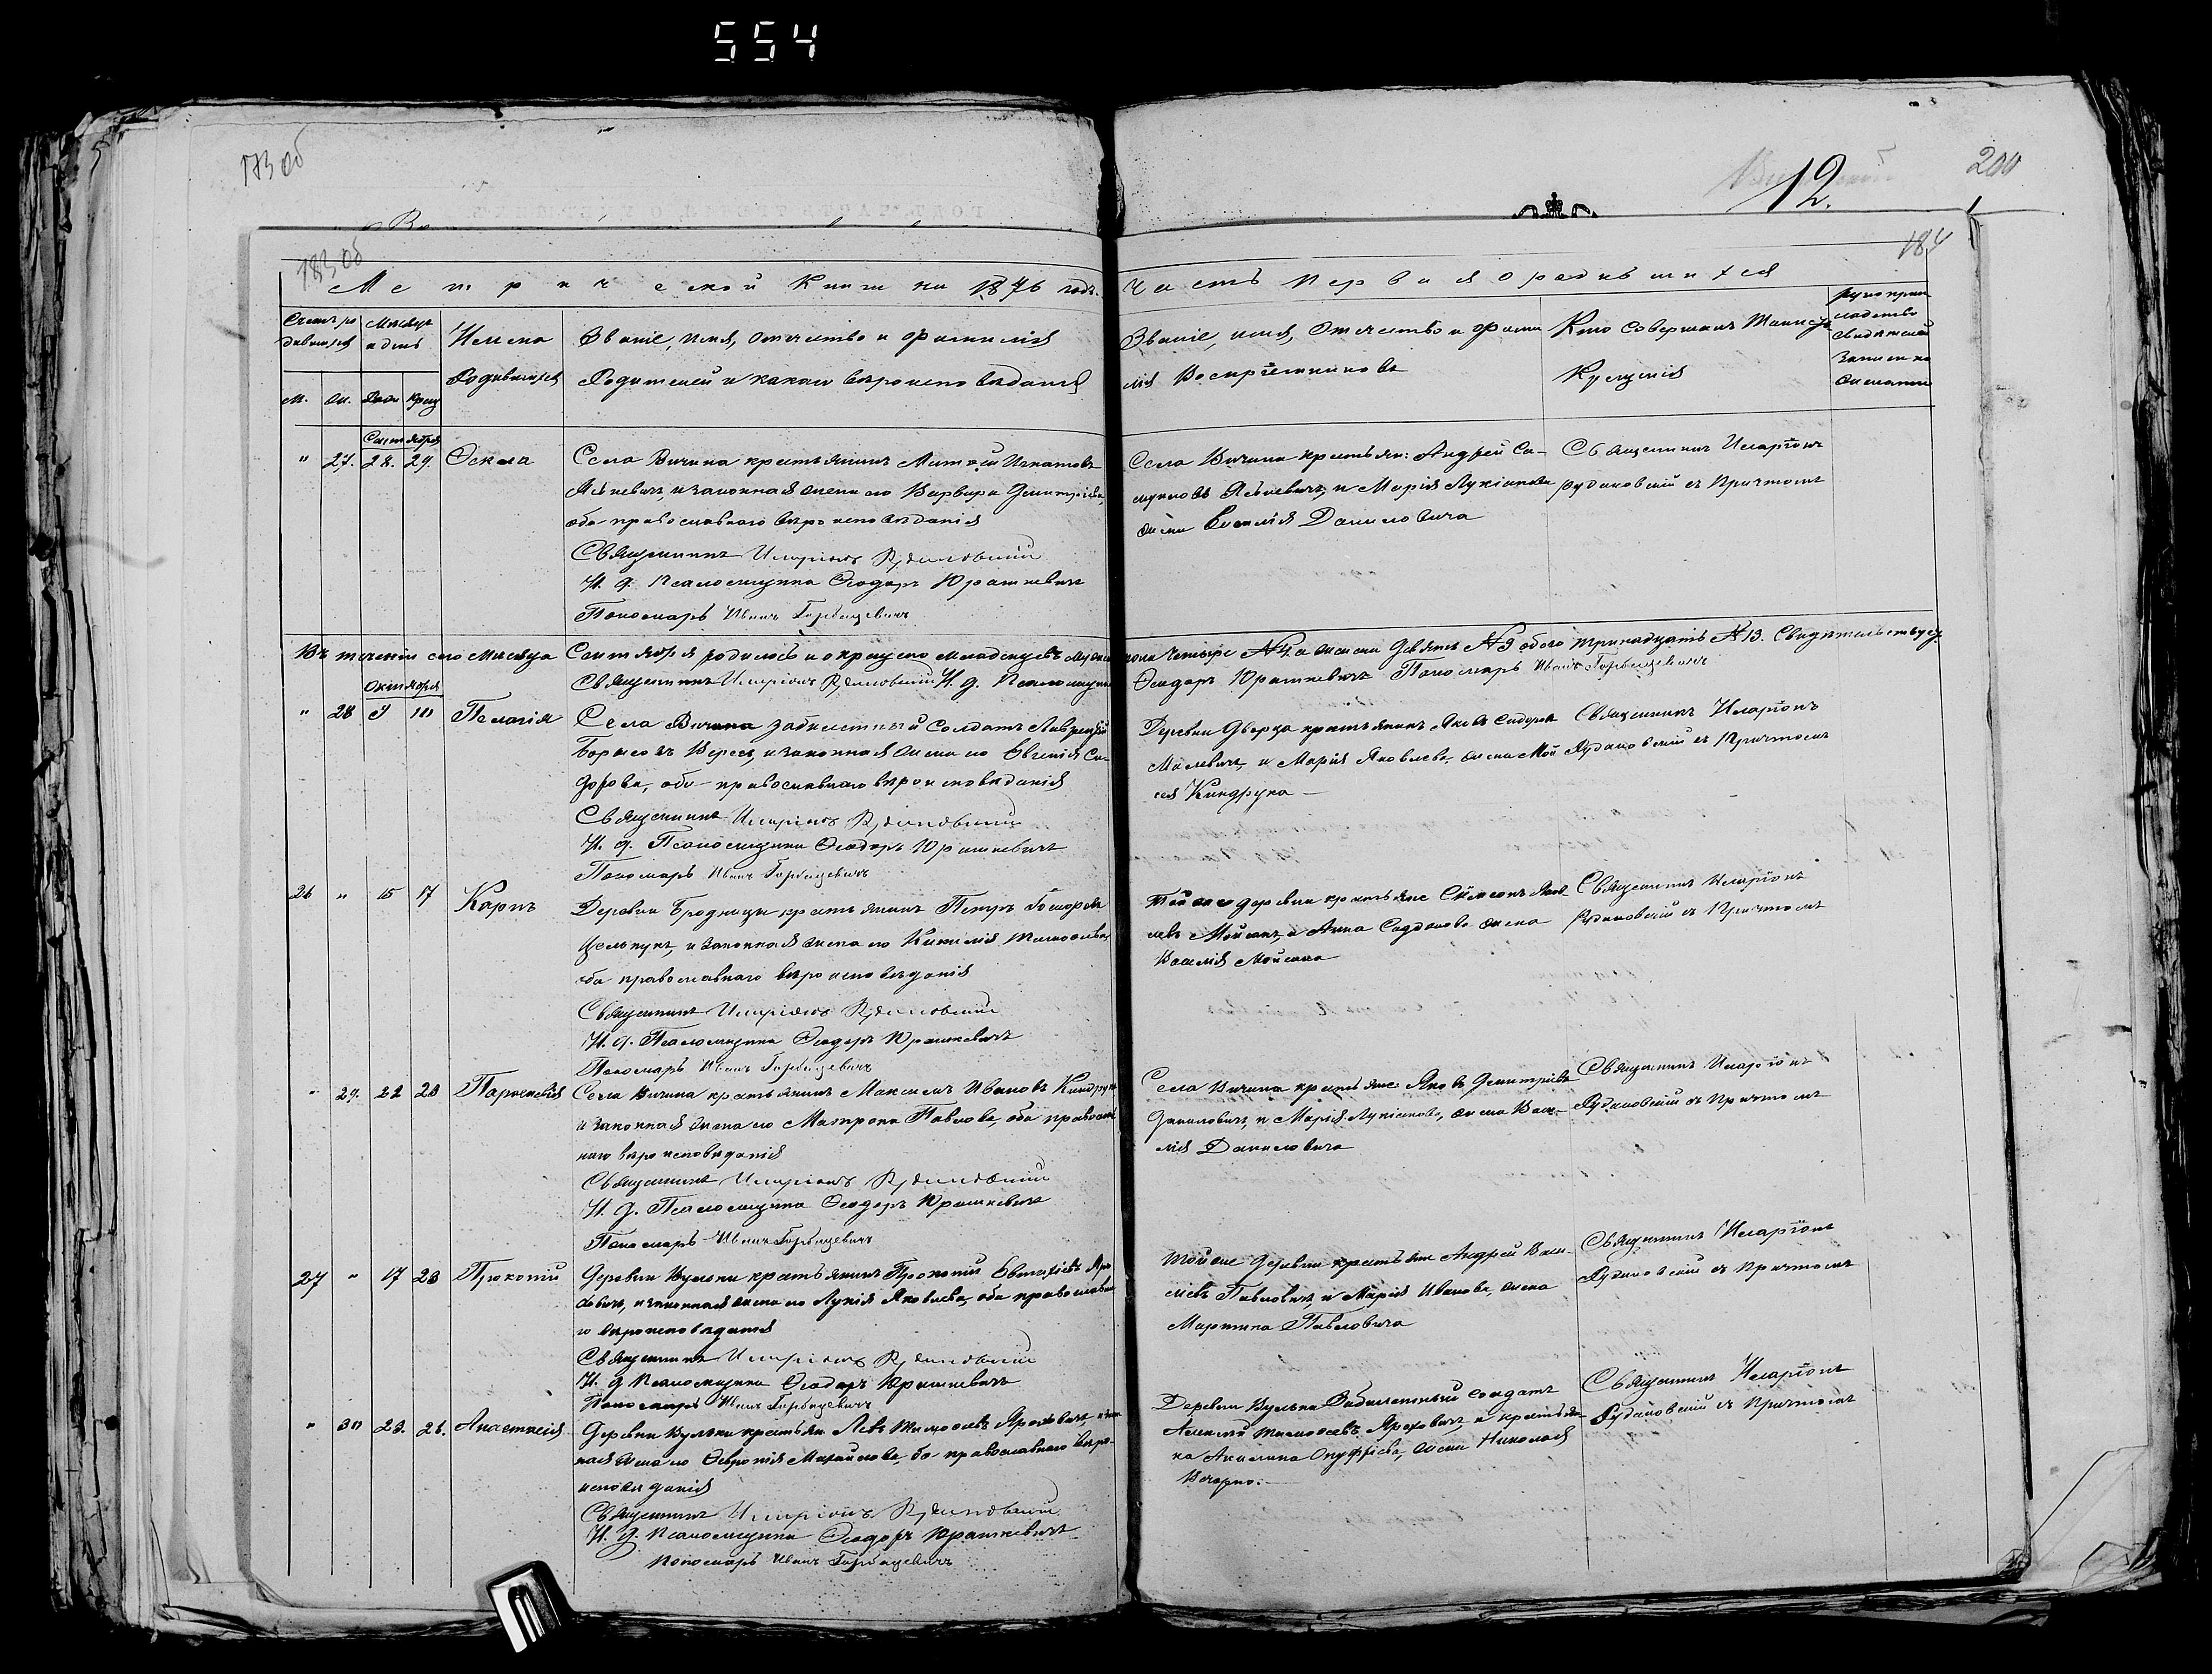 554
173 об
200
12.
183 об
184
Метрической Книги на 1876 годъ.
Часть Первая о родившихся
Счетъ ро
дившихся
Мѣсяцъ
и день
М.
Имена
Родившихся
Званіе, имя, отчество и фамилія
Родителей и какого вѣроисповѣданія
Званіе, имя, отчество и фами
лія Воспріемниковъ
Кто совершалъ Таинство
Крещенія
Сентября
" 27. 28. 29. Ѳекла
Села Вичина крестьянинъ
и законная жена его Варвара Димитріева,
оба православнаго вѣроисповѣданія
Священникъ Иларіонъ Рудаковскій
И. д. Псаломщика Ѳеодоръ Юрашкевичъ
Пономаръ Иванъ Горбацевичъ
Села Вичина крестьян: Андрей Са-
муиловъ и Марія Лукіанова
жена Василія Даниловича
Священникъ Иларіонъ
Рудаковскій съ Причтомъ
Въ теченіи сего Мѣсяца Сентября родилось и окрещено младенцевъ мужеска
пола четыре №4, а женска девять №9 обоего тринадцать №13. Свидѣтельствуе
Священникъ Иларіонъ Рудаковскій И. д. Псаломщика
Ѳеодоръ Юрашкевичъ Пономаръ Иванъ Горбацевичъ
Октября
" 28 9 10 Пелагія
Села Вичина Солдатъ Лаврентій
Борисовъ и законная жена его Евгенія Си-
дорова, оба православнаго вѣроисповѣданія
Священникъ Иларіонъ Рудаковскій
И. д. Псаломщика Ѳеодоръ Юрашкевичъ
Пономаръ Иванъ Горбацевичъ
Деревни Дворца крестьянинъ Яковъ Сидоровъ
Масевичъ, и Марія Яковлева, жена Мой
сея Киндрука
Священникъ Иларіонъ
Рудаковскій съ Причтомъ
26 " 15 17 Карпъ
Деревни Бродницы крестьянинъ Петръ
и законная жена его Тимоѳеева,
оба православнаго вѣроисповѣданія
Священникъ Иларіонъ Рудаковскій
И. д. Псаломщика Ѳеодоръ Юрашкевичъ
Пономаръ Иванъ Горбацевичъ
Той же деревни крестьяне Сѵмеонъ Яков
левъ и Анна жена
Василія
Священникъ Иларіонъ
Рудаковскій съ Причтомъ
" 29. 22 23 Параскевія
Села Вичина крестьянинъ Максимъ Ивановъ Киндрукъ
и законная жена его Матрона Павлова, оба православ
наго вѣроисповѣданія
Священникъ Иларіонъ Рудаковскій
И. д. Псаломщика Ѳеодоръ Юрашкевичъ
Пономаръ Иванъ Горбацевичъ
Села Вичина крестьяне: Яковъ Димитріевъ
Даниловичъ, и Марія Лукіанова, жена Васи-
лія Даниловича
Священникъ Иларіонъ
Рудаковскій съ Причтомъ
27 " 17 23 Прокопій
Деревни Вульки крестьянинъ Прокопій Евстафіевъ Яро
ховичъ, и законная жена его Лукія Яковлева, оба православна
го вѣроисповѣданія
Священникъ Иларіонъ Рудаковскій
И. д. Псаломщика Ѳеодоръ Юрашкевичъ
Пономаръ Иванъ Горбацевичъ
Той же деревни крестьяне Андрей Васи-
ліевъ Павловичъ, и Марія Иванова, жена
Мартина Павловича
Священникъ Иларіонъ
Рудаковскій съ Причтомъ
" 30 23. 26. Анастасія
Деревни Вульки крестьян Левъ Тимоѳеевъ Яроховичъ, и закон
ная жена его Ѳевронія Михайлова, оба православнаго вѣро-
исповѣданія
Священникъ Иларіонъ Рудаковскій
И. д. Псаломщика Ѳеодоръ Юрашкевичъ
Пономаръ Иванъ Горбацевичъ
Деревни Вульки солдатъ
Алексѣй Тимоѳеевъ Яроховичъ, и крестьян
ка Акилина Онуфріева, жена Николая
Священникъ Иларіонъ
Рудаковскій съ Причтомъ